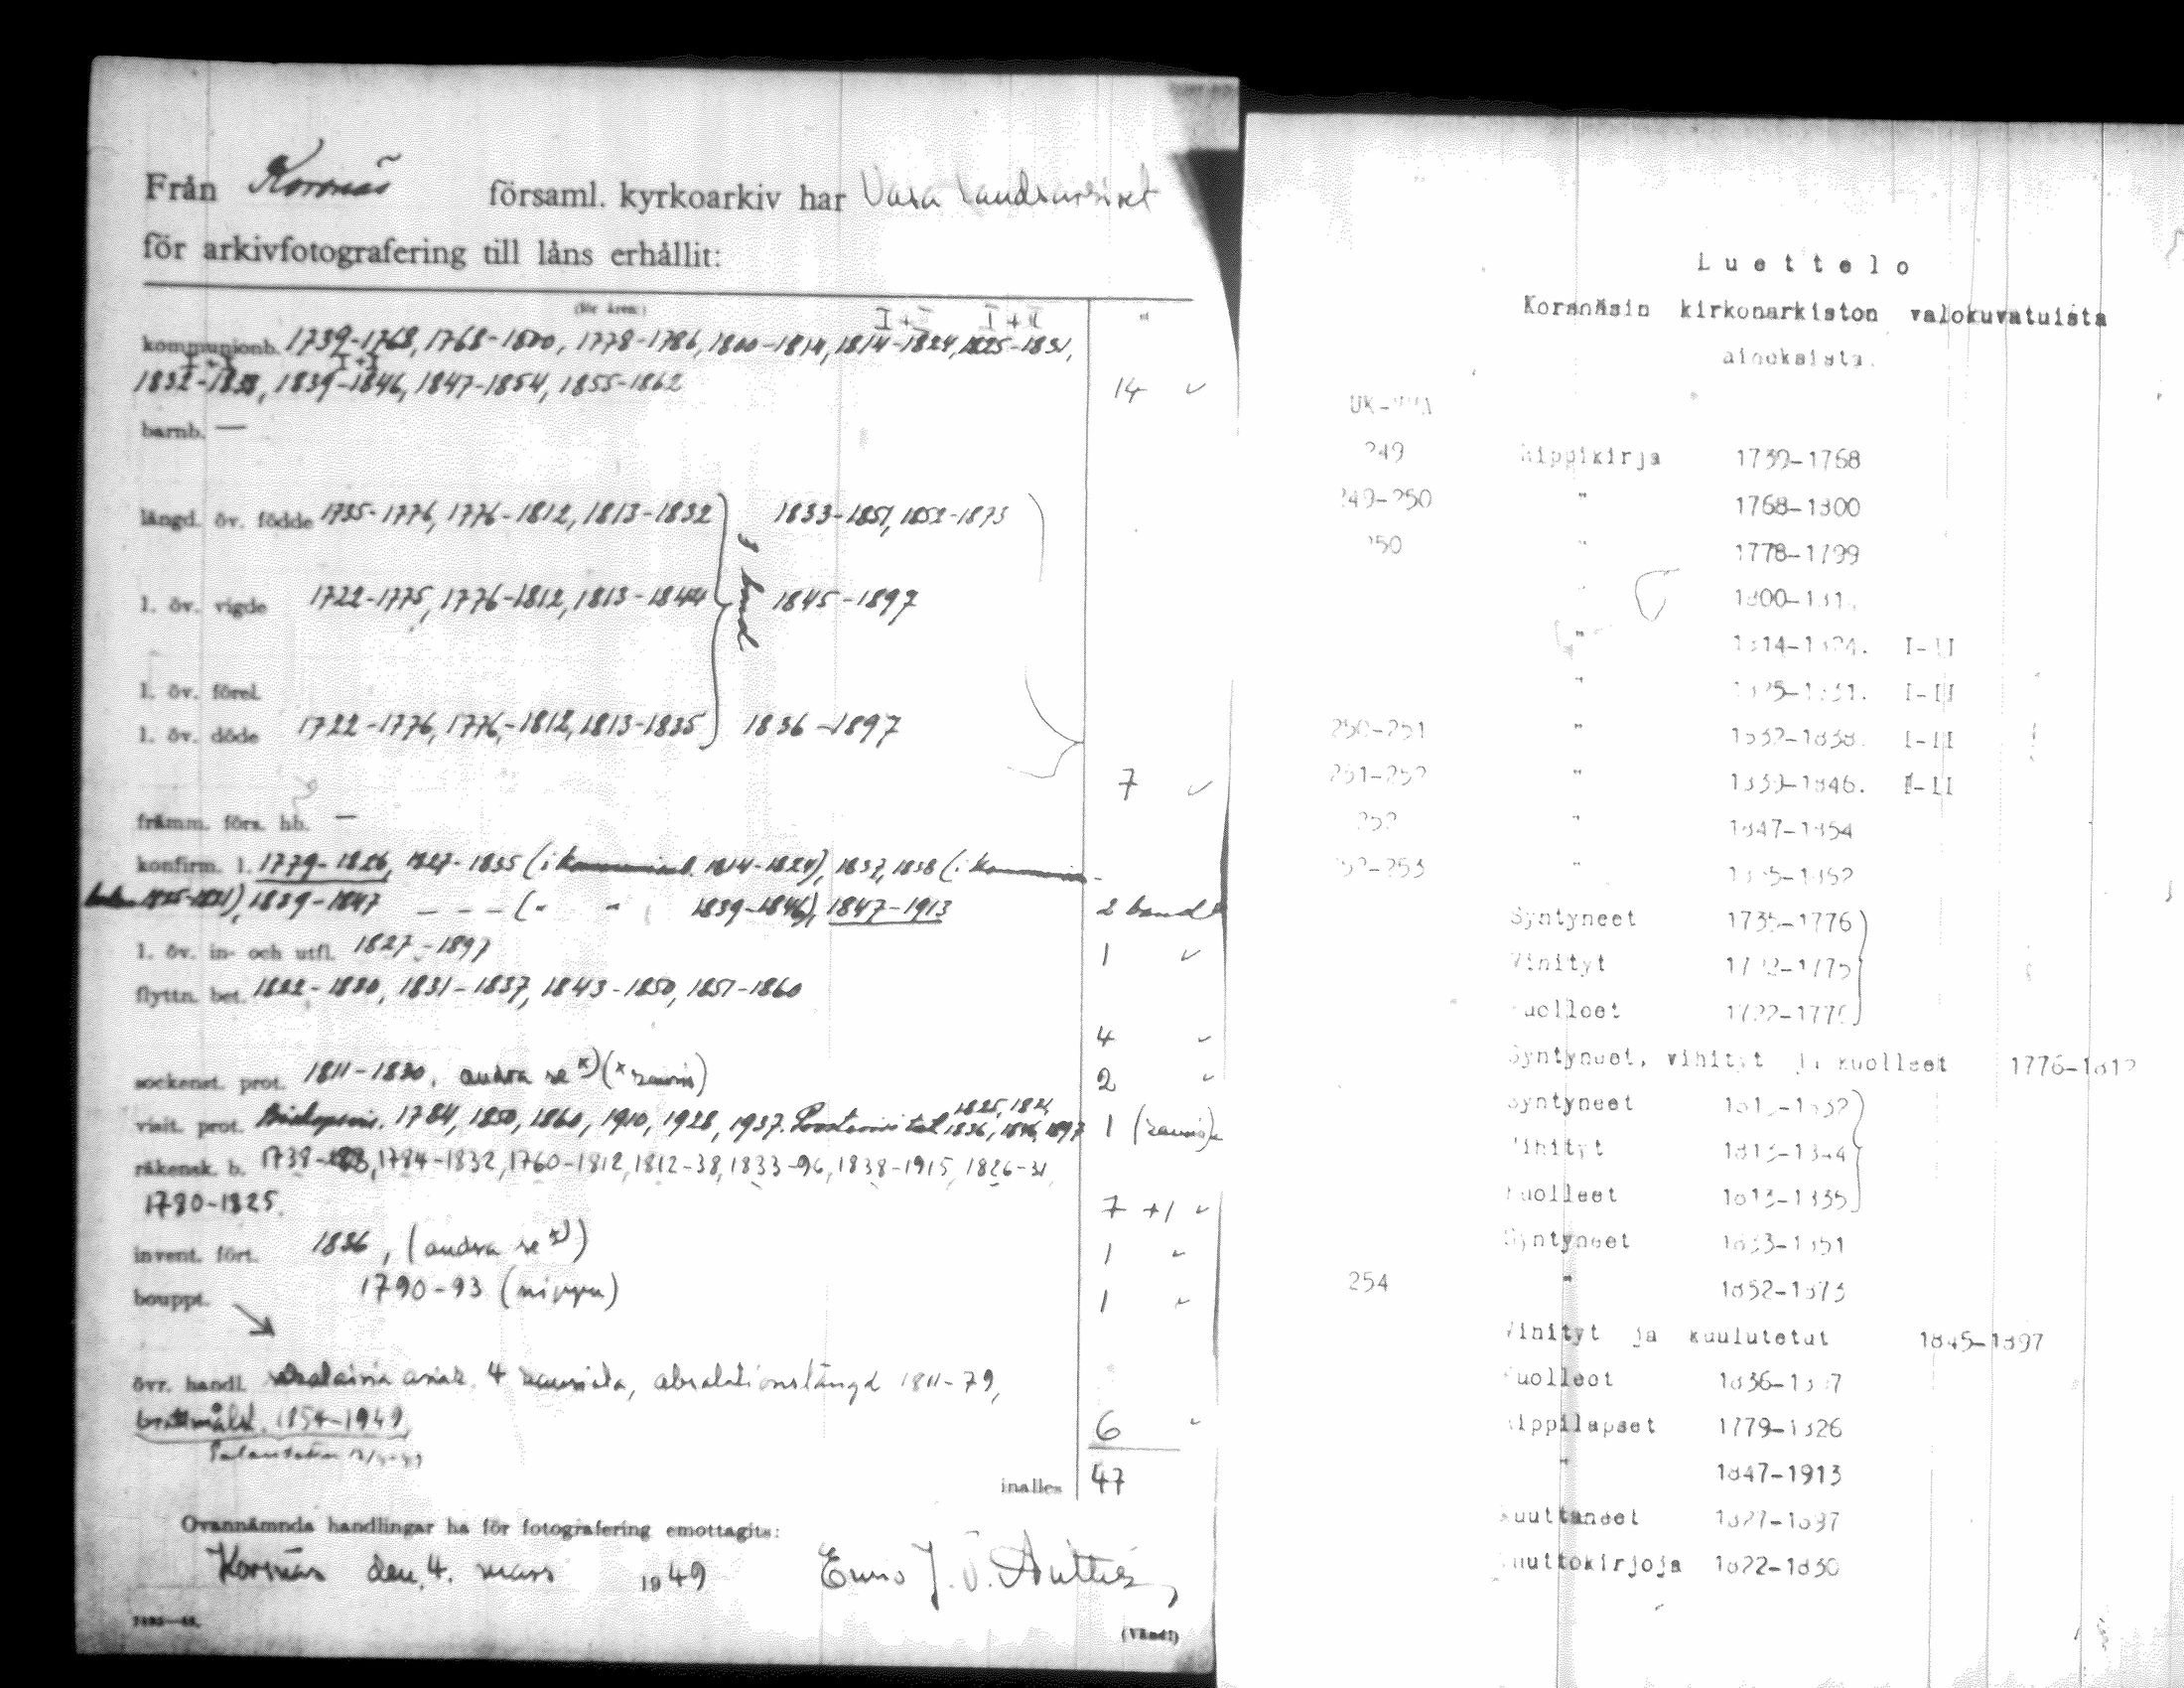 Från Korsnäs församl. kyrkoarkiv har Vasa landsarkivet
för arkivfotografering till låns erhållit:
(för åren:)
I+II I+II
kommunionb. 1739-1768, 1768-1800, 1778-1786, 1800-1814, 1814-1824, 1825-1831,
I+I I+I
1832-1838, 1839-1846, 1847-1854, 1855-1862 14
barnb. —
längd. öv. födde 1735-1776, 1776-1812, 1813-1832 1833-1851, 1852-1873
1 band
l. öv. vigde 1722-1775, 1776-1812, 1813-1844 1845-1897
l. öv. förel.
l. öv. döde 1722-1776, 1776-1812, 1813-1835 1836-1897
7
främm. förs. hb. —
konfirm. l. 1779-1826, 1827-1835 (i 1814-1824), 1837, 1838 (i
1825-1831), 1839-1847 - - - (" " 1839-1846), 1847-1913 2 band
l. öv. in- och utfl. 1827-1897 1
flyttn. bet. 1822-1830, 1831-1837, 1843-1850, 1851-1860
4
sockenst. prot. 1811-1830, andra se x) (x 2
visit. prot. 1784, 1850, 1860, 1910, 1928, 1937. 1825, 1821, 1836, 1846, 1897 1
räkensk. b. 1784-1832, 1760-1812, 1812-38, 1833-96, 1838-1915, 1826-31
1790-1825. 7 +1
invent. fört. 1836, (andra se x)) 1
bouppt. 1790-93 (nippu) 1
övr. handl. 4 absolutionslängd 1811-79,
1854-1949 6
inalles 47
Ovannämnda handlingar ha för fotografering emottagits:
Korsnäs den 4. mars 1949 J.
(Vänd!)
Luettelo
Korsnäsin kirkonarkiston valokuvatuista
aineksista.
249 Rippikirja 1739-1768
249-250 " 1768-1800
250 " 1778-1799
" 1814-1824. I-II
" 1825-1831. I-II
250-251 " 1832-1838. I-II
251-252 " 1839-1846. I-II
252 " 1847-1854
252-253 " 1855-1862
Syntyneet 1735-1776
Vihityt 1722-1775
Kuolleet 1722-1776
Syntyneet, vihityt ja kuolleet 1776-1812
Syntyneet 1813-1832
Vihityt 1813-1844
Kuolleet 1813-1835
Syntyneet 1833-1851
254 " 1852-1873
Vihityt ja kuulutetut 1845-1897
Kuolleet 1836-1897
Rippilapset 1779-1826
" 1847-1913
Muuttaneet 1827-1897
Muuttokirjoja 1822-1830